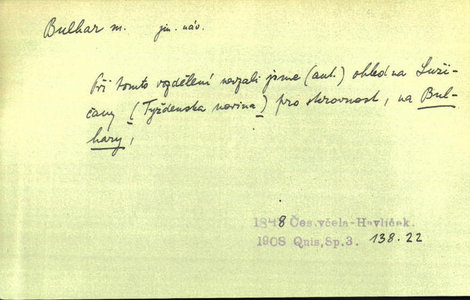 Bulhar m. jm. náv.
Při tomto rozdělení nevzali jsme (aut.) ohled na Luži-
čany (Tyždenska novina) pro skrovnost, na Bul-
hary,
1848 Čes.včela-Havlíček.
1908 Quis,Sp.3. 138.22